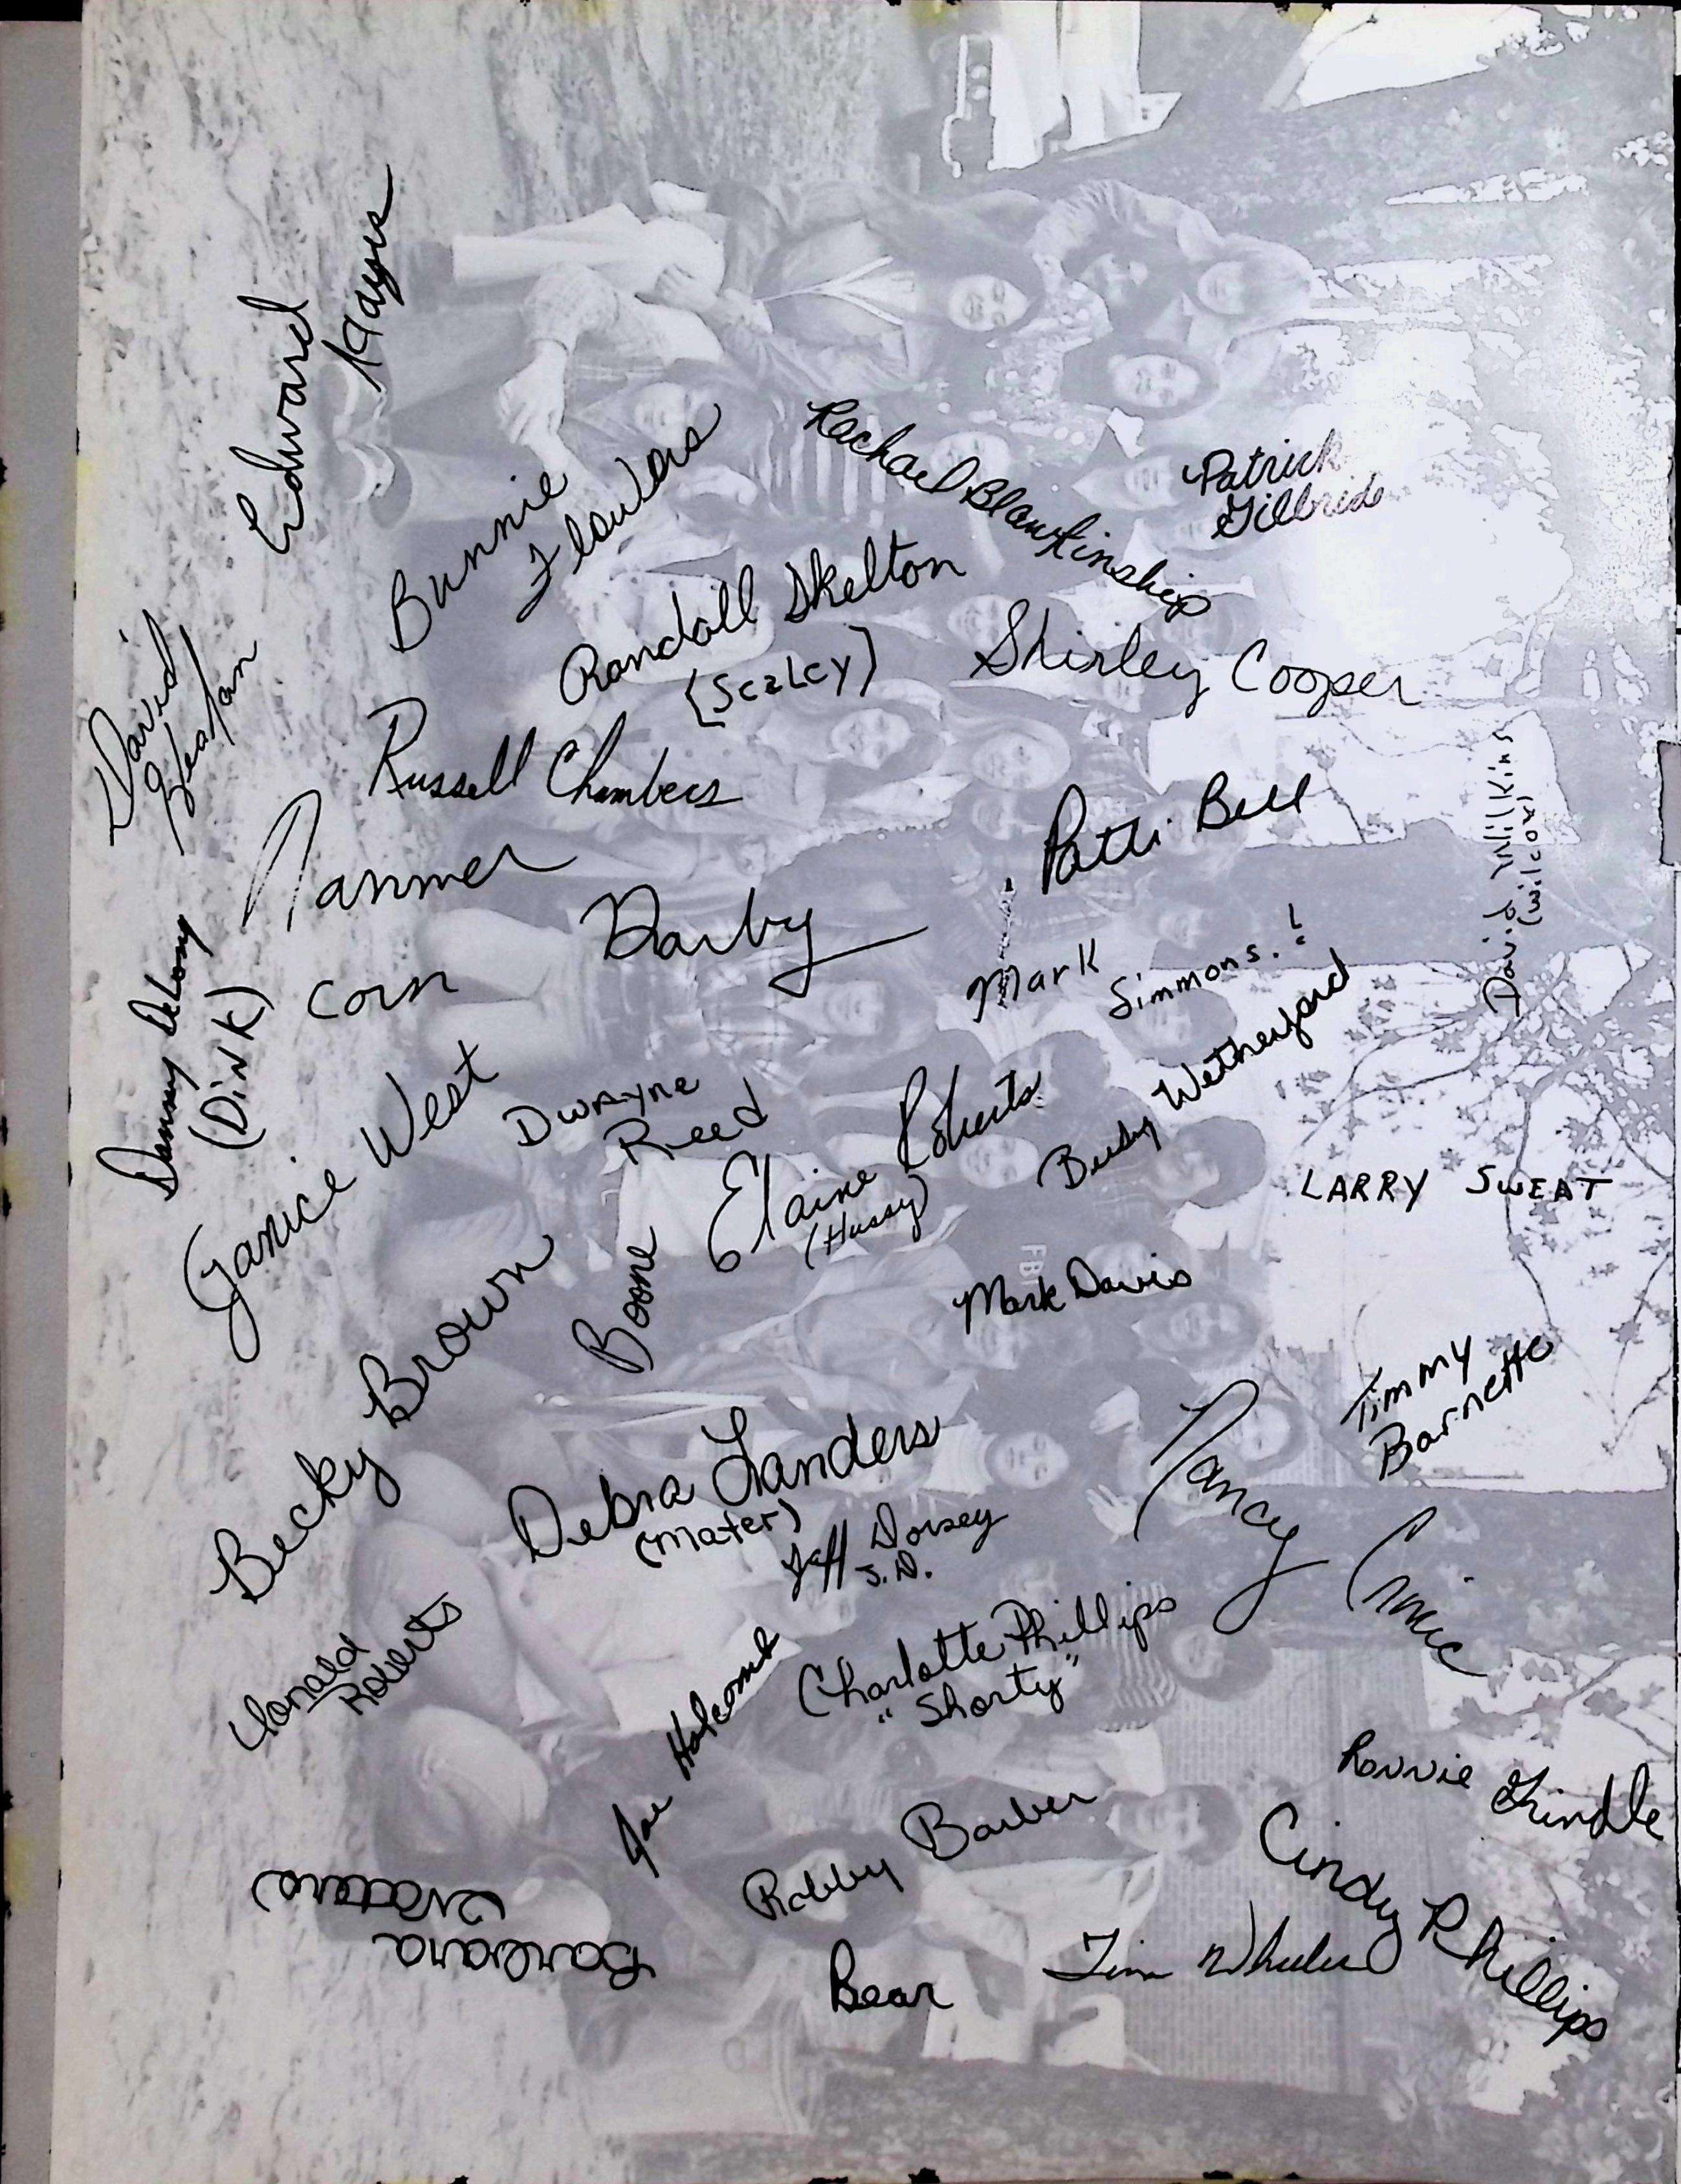 Edward
Hayes
Bunnie
Flowers
Rachael Blankinship
Patrick
Gilbride
Randall Skelton
(Scaley)
Shirley Cooper
David
Heaton
Russell Chambers
Tanner
Darby
Corn
Patti Bell
David Wilkins
(wilcox)
Mark
Simmons.!
Danny
(Dink)
Janice West
Dwayne
Reed
Elaine Roberts
(Hussy)
Wetherford
LARRY SWEAT
FBI
Boone
Mark Davis
Becky Brown
Timmy
Barnette
Debra Landers
(mater)
Jeff Dorsey
J.D.
Nancy
Donald
Roberts
Charlotte Phillips
"Shorty"
Joe Holcomb
Ronnie Grindle
Robby Barber
Cindy Phillips
Barbara
Bear
Tim Wheeler